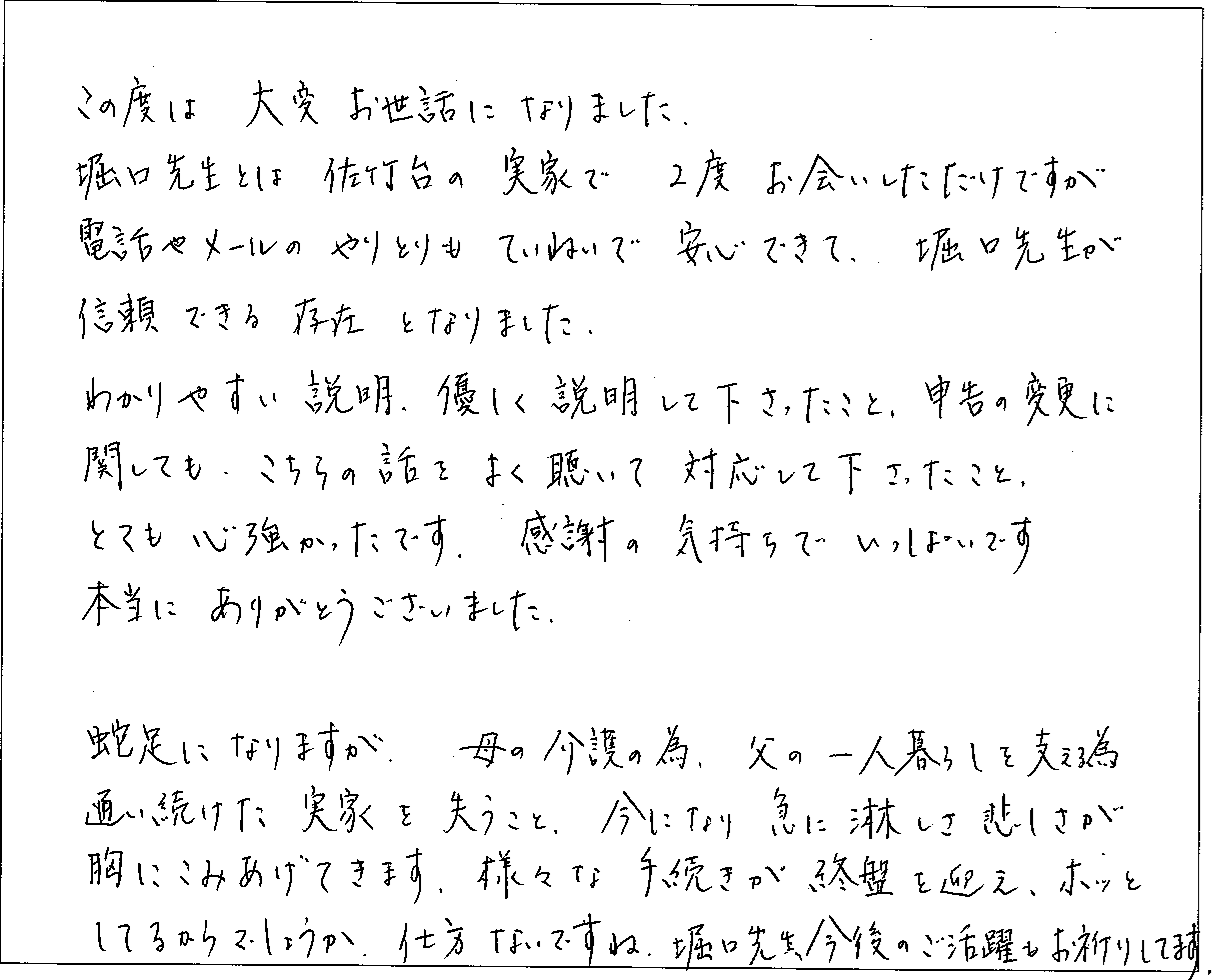 この度は 大変 お世話に なりました.
堀口先生とは 佐竹台の 実家で 2度 お会いしただけですが
電話やメールの やりとりも ていねいで 安心できて、 堀口先生が
信頼 できる 存在 となりました.
わかりやすい 説明、優しく 説明して下さったこと、申告の変更に
関しても、こちらの話を よく 聴いて 対応して下さったこと、
とても 心強かったです. 感謝の 気持ちで いっぱいです
本当に ありがとうございました.
蛇足に なりますが、 母の 介護の為、父の 一人暮らしを 支える為
通い続けた 実家を 失うこと、今になり 急に 淋しさ 悲しさが
胸に こみあげてきます. 様々な 手続きが 終盤を迎え、ホッと
してるからでしょうか. 仕方 ないですね. 堀口先生、今後のご活躍もお祈りしてます.